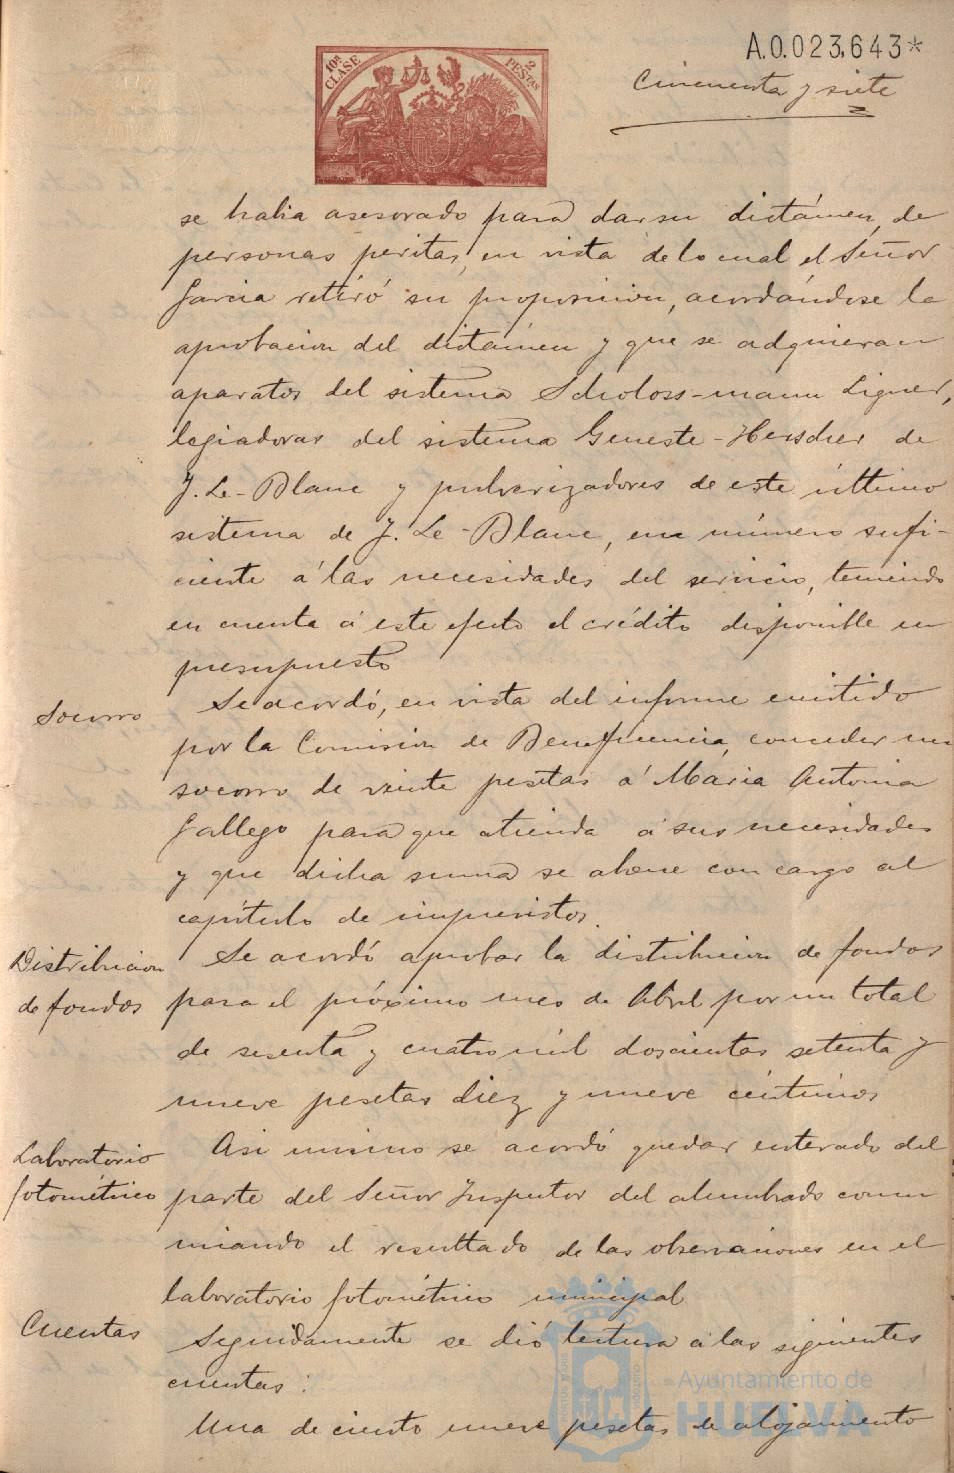 A.0.023,643*
10ª CLASE
2 PESETAS
Cincuenta y siete
se habia asesorado para dar su dictámen, de
personas peritas, en vista de lo cual el Señor
Garcia retiró su proposicion, acordándose la
aprobacion del dictámen y que se adquieran
aparatos del sistema Scholoss-mann Ligner,
legiadoras del sistema Geneste-Herscher de
J. Le-Blanc y pulverizadores de este último
sistema de J. Le-Blanc, en número sufi-
ciente á las necesidades del servicio, teniendo
en cuenta á este efecto el crédito disponible en
presupuesto
Socorro
Se acordó, en vista del informe emitido
por la Comision de Beneficencia, conceder un
socorro de veinte pesetas á Maria Antonia
Gallego para que atienda á sus necesidades
y que dicha suma se abone con cargo al
capítulo de imprevistos.
Distribucion
de fondos
Se acordó aprobar la distribucion de fondos
para el próximo mes de Abril por un total
de sesenta y cuatro mil doscientas setenta y
nueve pesetas diez y nueve céntimos
Laboratorio
fotométrico
Asi mismo se acordó quedar enterado del
parte del Señor Inspector del alumbrado comu
nicando el resultado de las observaciones en el
laboratorio fotométrico municipal
Cuentas
Seguidamente se dió lectura á las siguientes
cuentas:
Una de ciento nueve pesetas de alojamiento
Ayuntamiento de
HUELVA